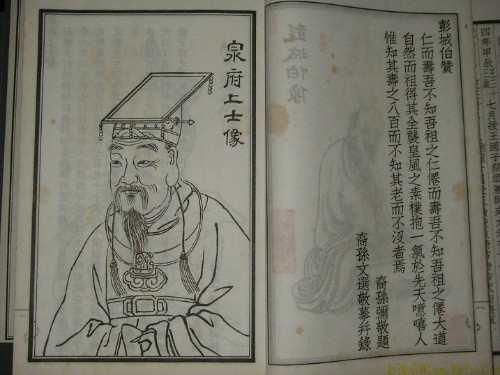 彭城伯贊
仁而壽吾不知吾祖之仁僊而壽吾不知吾祖之僊大道
自然而祖得其全襲皇風之素樸抱一氣於先天噫嘻人
惟知其壽之八百而不知其老而不沒者焉
裔孫彌敬題
裔孫文選敬摹并錄
泉府上士像